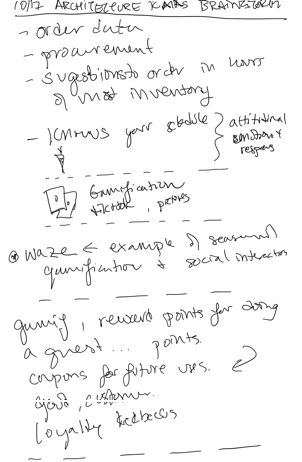 10/17 ARCHITECTURE KATAS BRAINSTORM
- order data
- procurement
- sugestions to order in hours
of most inventory
- knows your schedule
attitudinal
emotion &
respons
Gamification
tiktok, pictures
* waze ← example of seasonal
gamification & social interaction
gamif, reward points for doing
a quest... points.
coupons for future uses.
customer
loyalty feedbacks